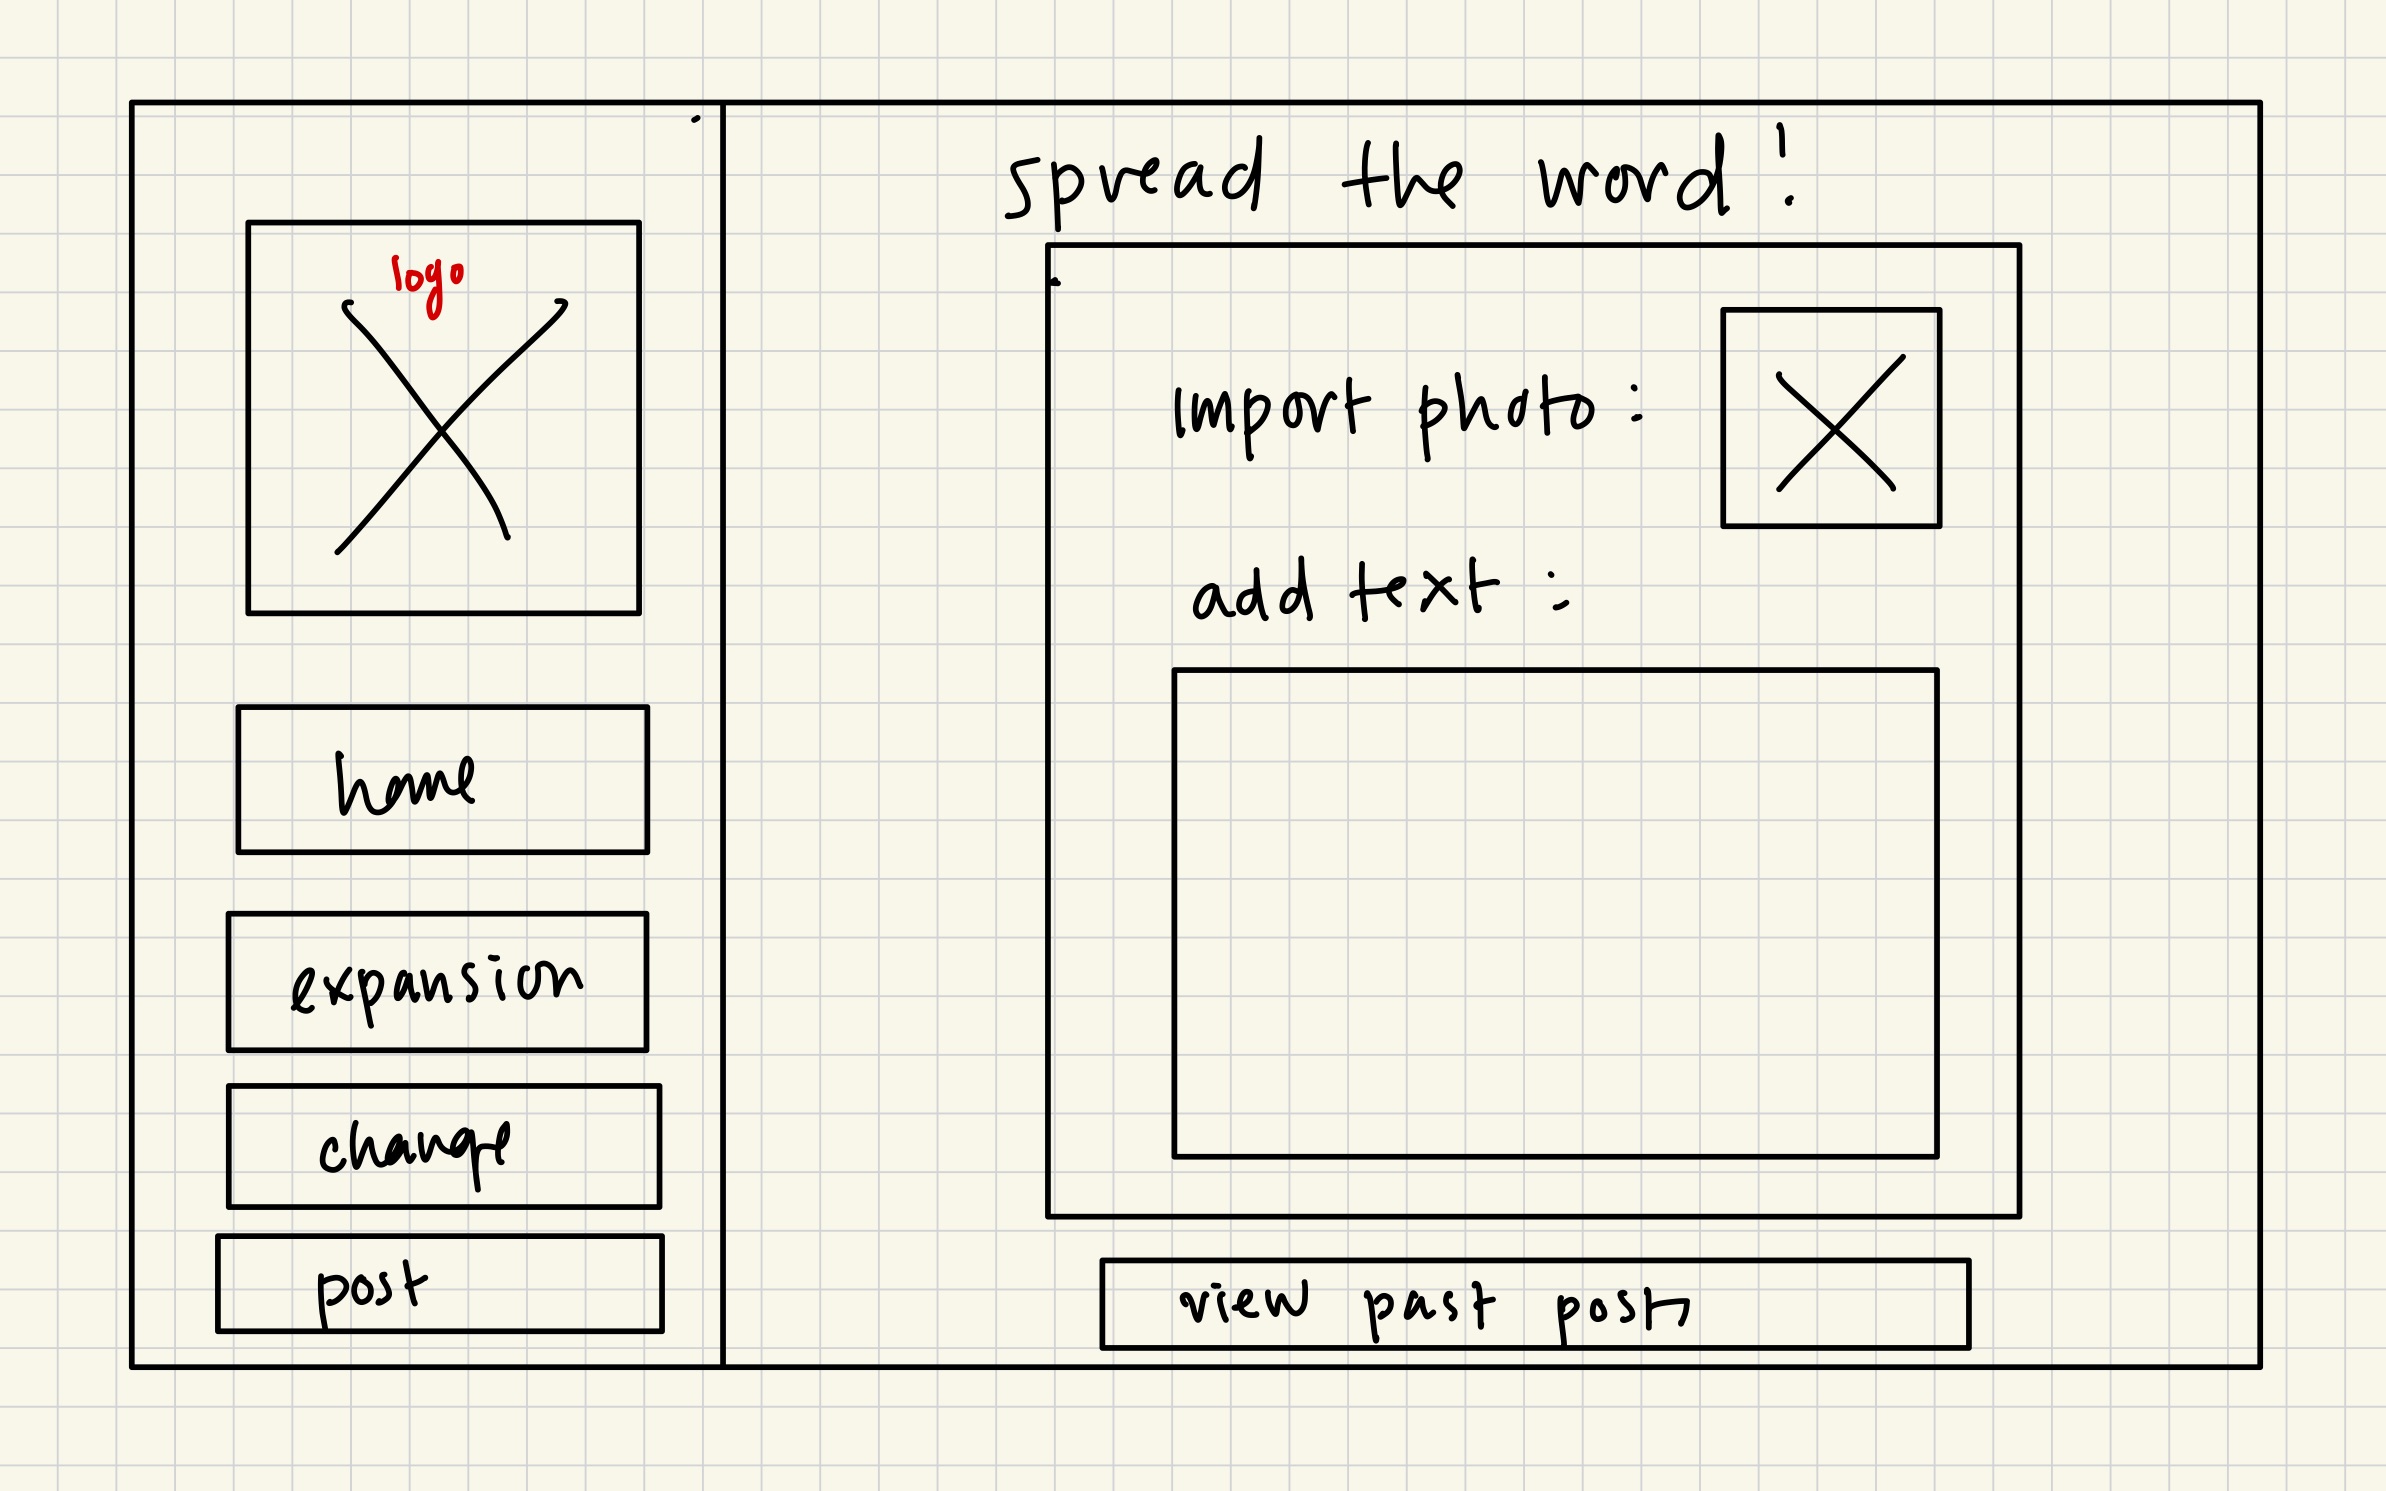 logo
home
expansion
change
post
spread the word!
import photo:
add text:
view past posts